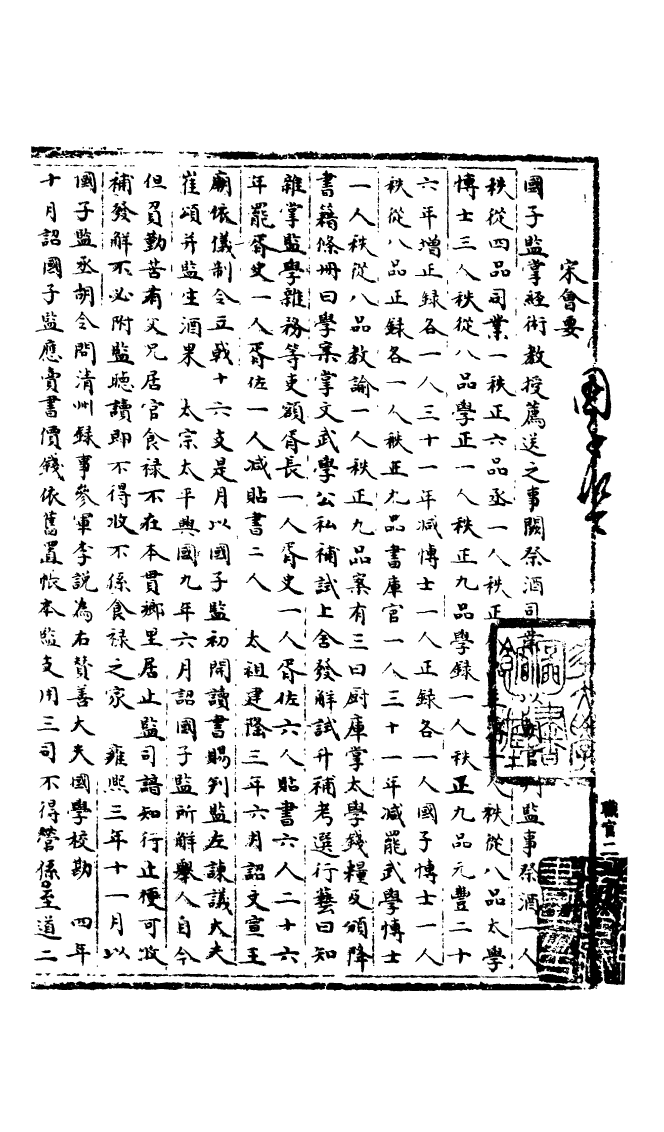 宋會要
國子監
國子監掌經術教授薦送之事闕祭酒司業 以 官 判監事祭酒一人
秩從四品司業一秩正六品丞一人秩正 人秩從八品太學
博士三人秩從八品學正一人秩正九品學録一人秩正九品元豐二十
六年增正録各一人三十一年减博士一人正録各一人國子博士一人
秩從八品正録各一人秩正九品書庫官一人三十一年减罷武學博士
一人秩從八品教諭一人秩正九品案有三曰厨庫掌太學錢糧及頒降
書籍條冊曰學案掌文武學公私補試上舍發解試升補考選行藝曰知
雜掌監學雜務等吏額胥長一人胥史一人胥佐六人貼書六人二十六
年罷胥史一人胥佐一人减貼書二人 太祖建隆三年六月詔文宣王
廟依儀制令立戟十六支是月以國子監初開讀書賜判監左諫議大夫
崔頌并監生酒果 太宗太平興國九年六月詔國子監所解舉人自今
但負勤苦有父兄居官食禄不在本貫鄉里居止監司諳知行止便可收
補發解不必附監聴讀即不得收不係食禄之家 雍熙三年十一月以
國子監丞胡令問清州録事參軍李説為右贊善大夫國學校勘 四年
十月詔國子監應賣書價錢依舊置帳本監支用三司不得管係至道二
職官二